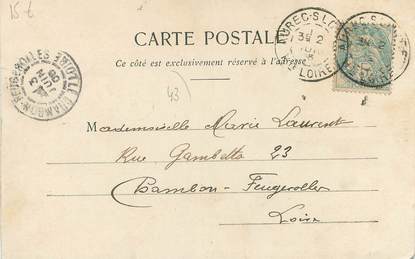 15 €
CARTE POSTALE
Ce côté est exclusivement réservé à l'adresse
43
LE CHAMBON-FEUGEROLLES
LOIRE
JUIN
AUREC-S-LOIRE
Mademoiselle Marie Laurent
Rue Gambetta 23
Chambon-Feugerolles
Loire